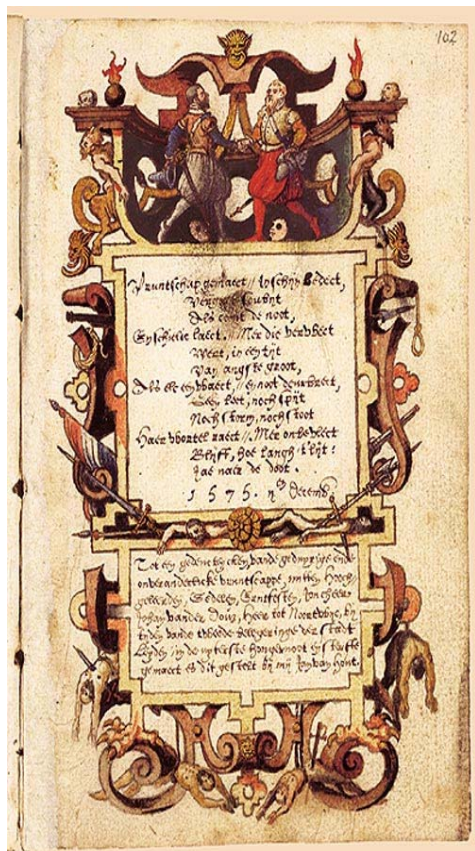 102
Vruntschap gemaect // in schijn bedect,
Als comt de noot,
En schielic laect. // Mer die verwect
Wert, in een tijt
Van angste groot,
Als elc en // noot
leet, noch spijt
Noch storm, noch stoot
Haer wortel raect // Mer onbevlect
Blijft, hoe langh 't lijt:
Jae naer de doot.
1575. Decemb.
Tot een gedencteycken vande
onveranderlicke vruntschappe, mitten Hooch
geleerden, Edelen, Erntfesten, Joncheere
Johan vander Does, Heer tot Noortwijc, bij
tijden vande tweede belegeringe der stadt
Leyden, in de uyterste hongernoot
gemaect es dit gestelt bij mij Jan van Hout.